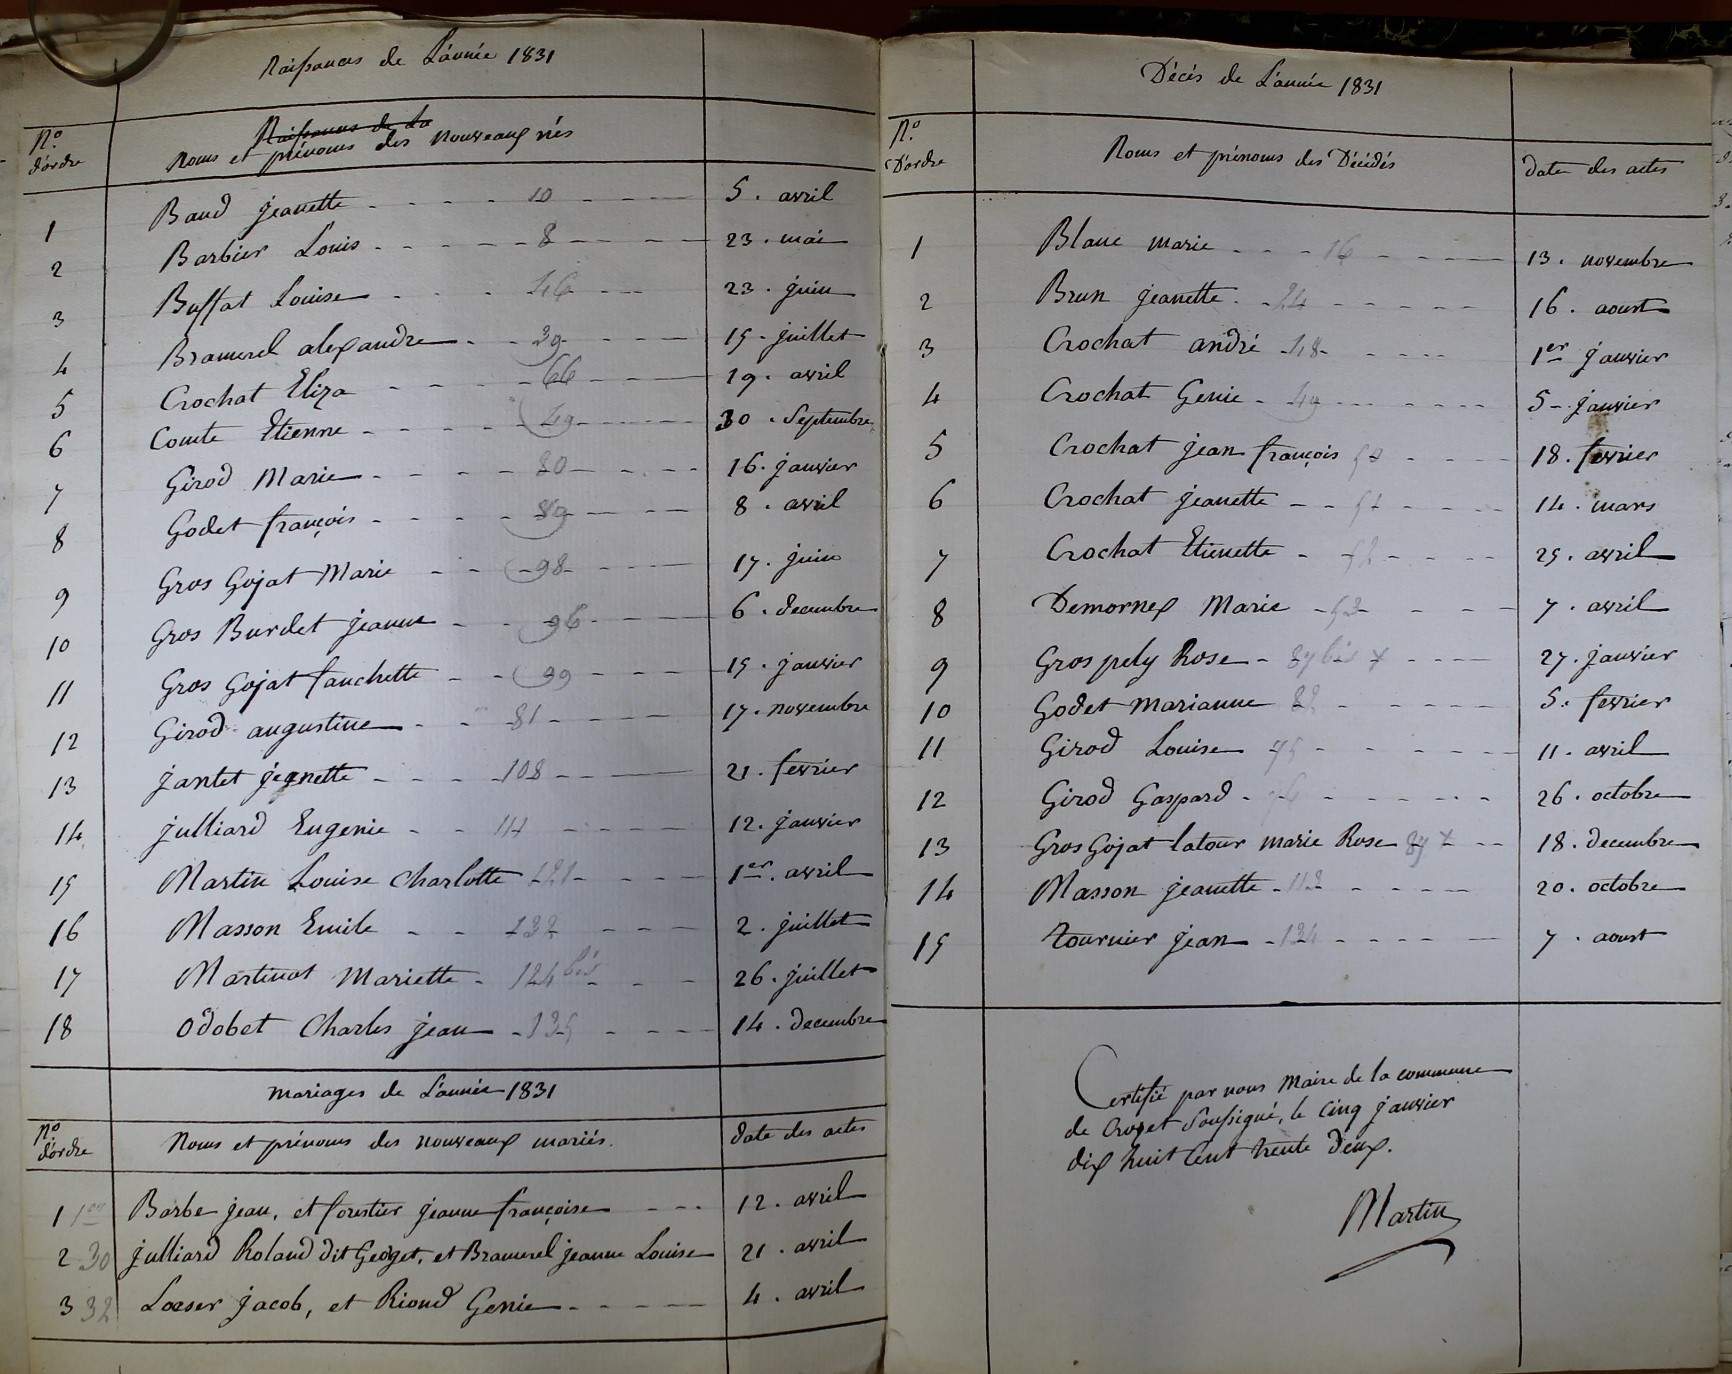 Naissances de L'année 1831
N.o d'ordre
Naissances de La
Noms et prénoms des nouveaux nés
1 Baud jeanette 10 5. avril
2 Barbier Louis 8 23. mai
3 Buffat Louise 16 23. juin
4 Bramerel alexandre 39 15. juillet
5 Crochat Eliza 66 19. avril
6 Comte Etienne 49 30. Septembre
7 Girod Marie 80 16. janvier
8 Godet françois 89 8. avril
9 Gros Gojat Marie 98 17. juin
10 Gros Burdet jeanne 96 6. decembre
11 Gros Gojat fanchette 99 15. janvier
12 Girod augustine 81 17. novembre
13 jantet jeanette 108 21. fevrier
14 julliard Eugenie 111 12. janvier
15 Martin Louise Charlotte 121 1er. avril
16 Masson Emile 132 2. juillet
17 Martinat Mariette 124 bis 26. juillet
18 Odobet Charles jean 135 14. decembre
mariages de L'année 1831
N.o d'ordre Noms et prénoms des nouveaux mariés. date des actes
1 1er Barbe jean, et forestier jeanne françoise 12. avril
2 30 julliard Roland dit Geoget, et Bramerel jeanne Louise 21. avril
3 32 Loeser jacob, et Rioud Genie 4. avril
Décés de L'année 1831
N.o D'ordre Noms et prénoms des Décédés date des actes
1 Blanc marie 16 13. novembre
2 Brun jeanette 24 16. aoust
3 Crochat andré 48 1er janvier
4 Crochat Genie 49 5 janvier
5 Crochat jean françois 18. fevrier
6 Crochat jeanette 14. mars
7 Crochat Etienette 52 25. avril
8 Demornex Marie 53 7. avril
9 Gros pely Rose 87 bis x 27. janvier
10 Godet marianne 82 5. fevrier
11 Girod Louise 75 11. avril
12 Girod Gaspard 76 26. octobre
13 Gros Gojat latour marie Rose 87 x 18. decembre
14 Masson jeanette 113 20. octobre
15 tournier jean 134 7. aoust
Certifié par nous Maire de la commune
de Crozet Soussigné, le Cinq janvier
dix huit Cent trente Deux.
Martin